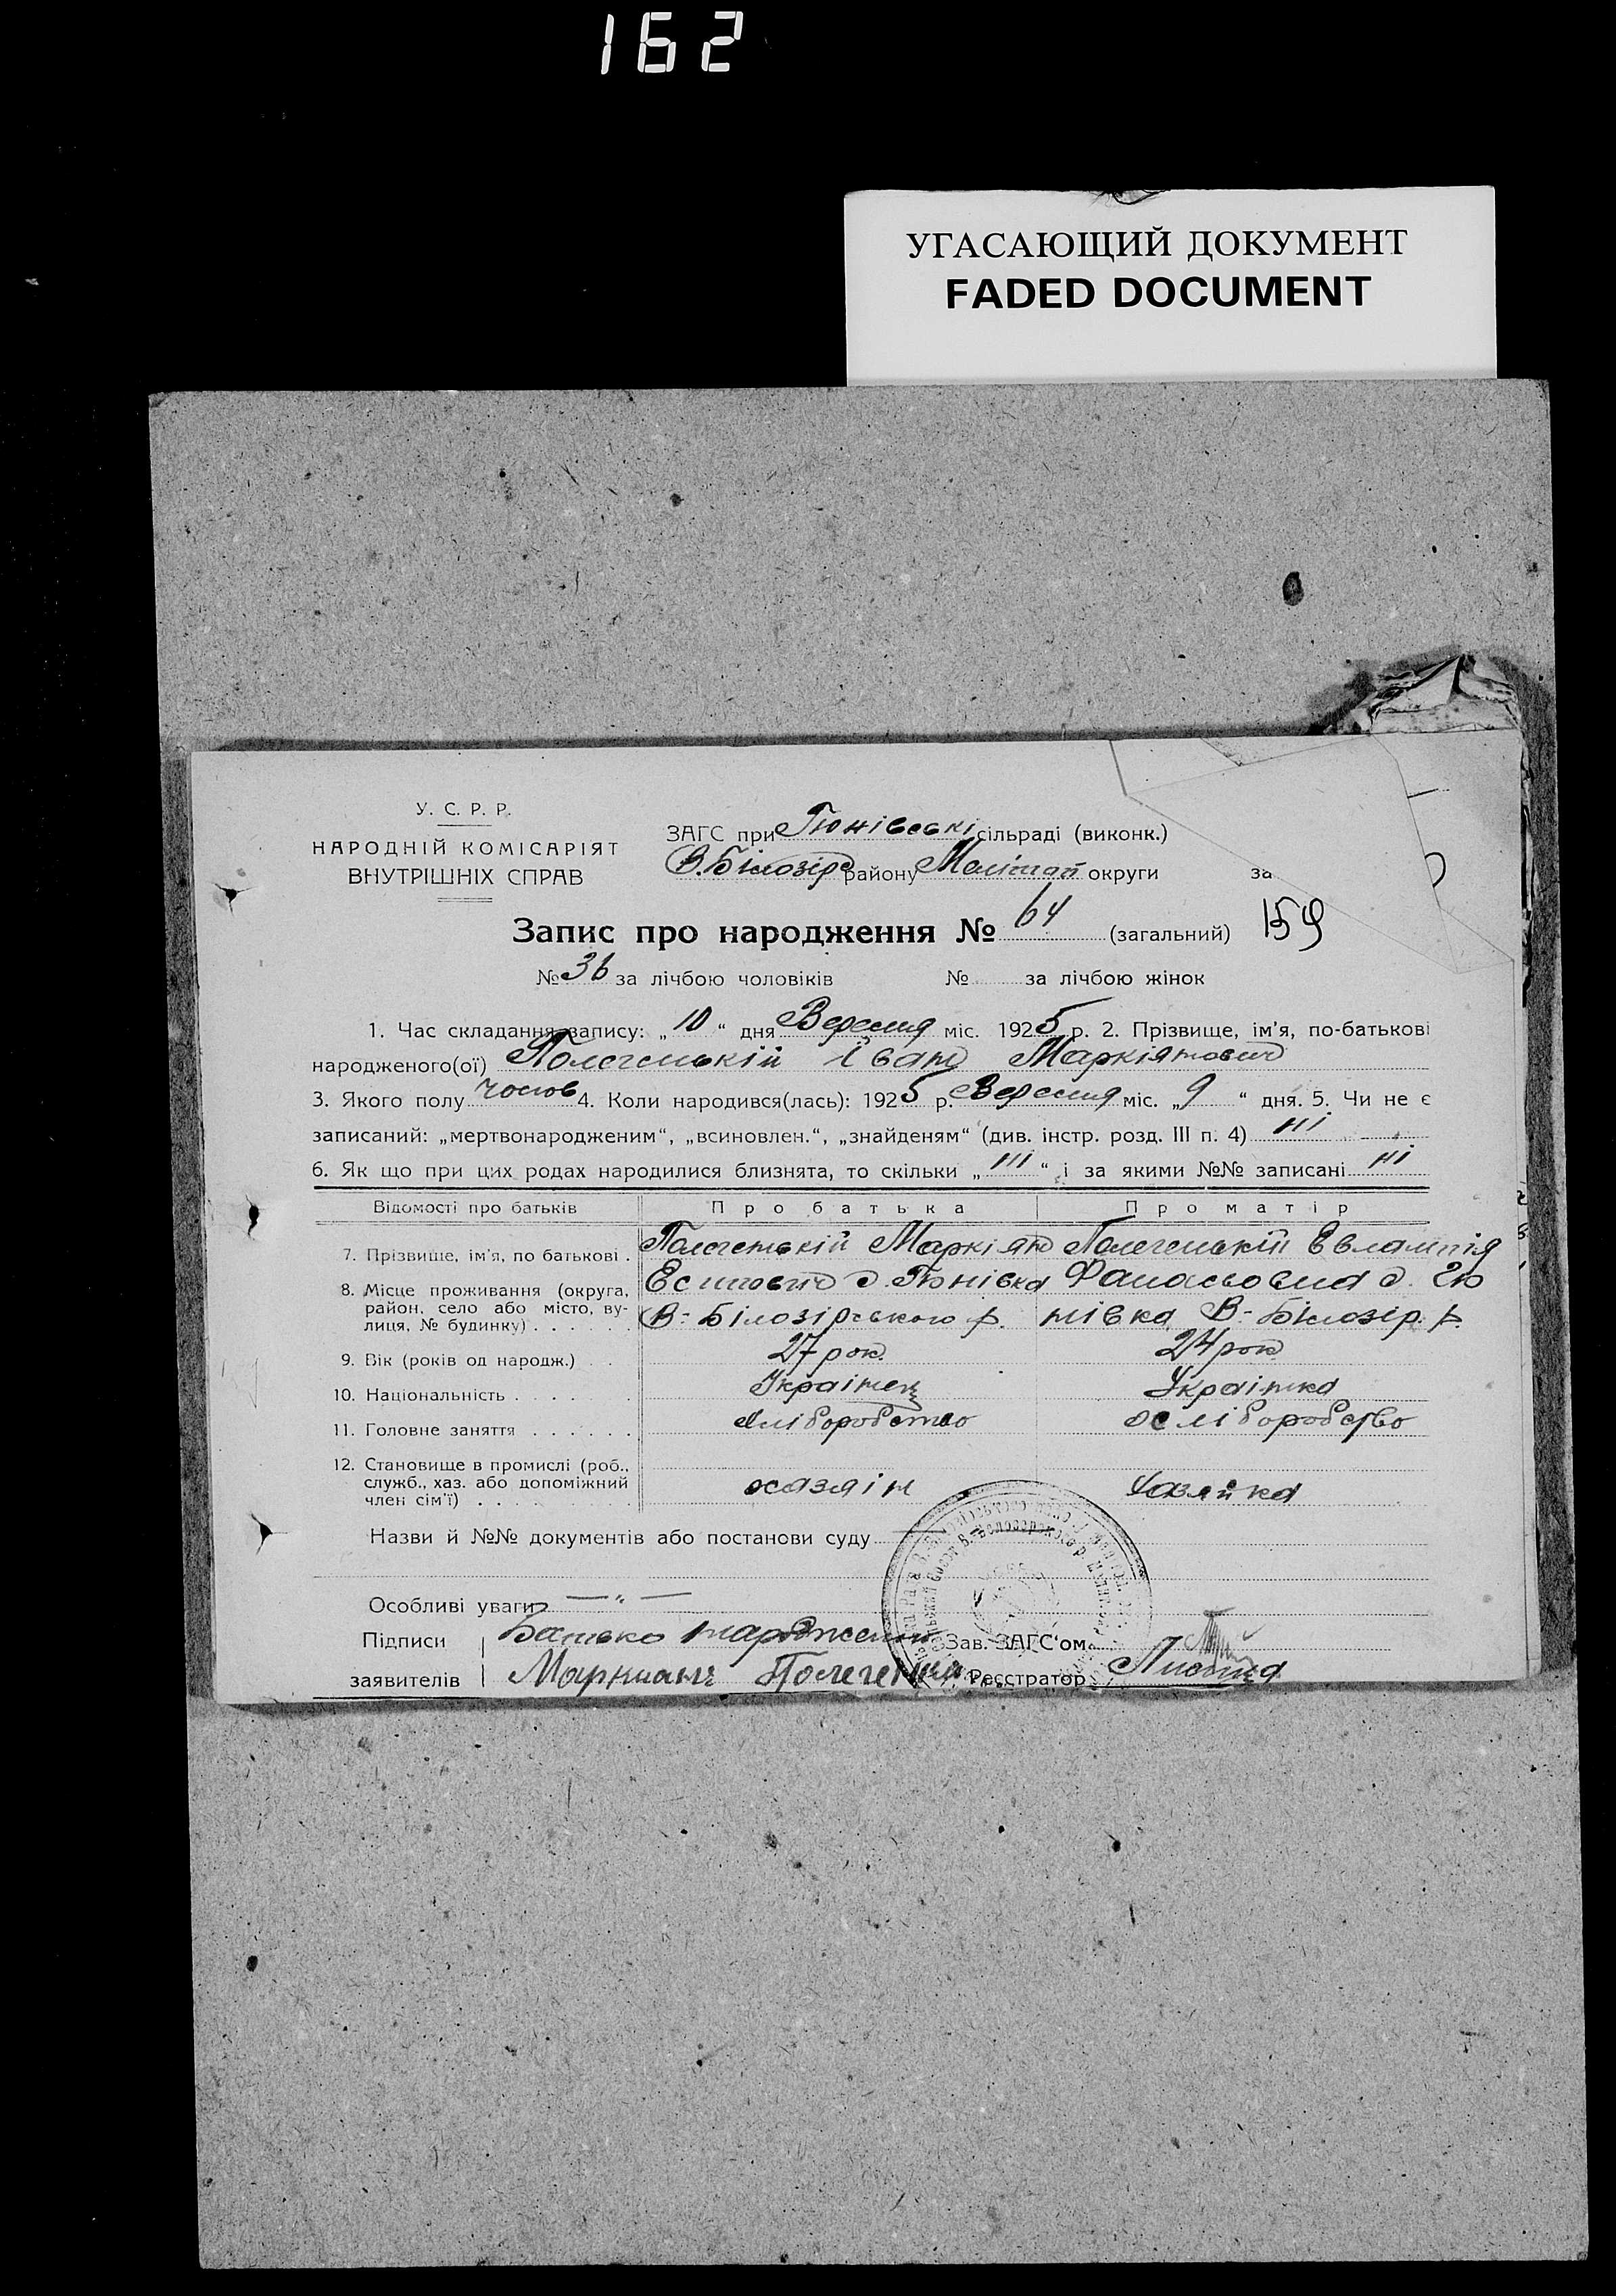 162
УГАСАЮЩИЙ ДОКУМЕНТ
FADED DOCUMENT
У. С. Р. Р.
НАРОДНІЙ КОМІСАРІЯТ
ВНУТРІШНІХ СПРАВ
ЗАГС при Гюнівські сільраді (виконк.)
В. Білозір району Меліт округи за
Запис про народження № 64 (загальний) 159
№ 36 за лічбою чоловіків № за лічбою жінок
1. Час складання запису: „ 10 “ дня Вересня міс. 1925 р. 2. Прізвище, ім'я, по-батькові
народженого(ої) Полегенькій Іван Маркіянович
3. Якого полу чолов 4. Коли народився(лась): 1925 р. Вересня міс. „ 9 “ дня. 5. Чи не є
записаний: „мертвонародженим“, „всиновлен.“, „знайденям“ (див. інстр. розд. III п. 4) ні
6. Як що при цих родах народилися близнята, то скільки „ ні “ і за якими №№ записані ні
Відомості про батьків Про батька Про матір
7. Прізвище, ім'я, по батькові . Полегенькій Маркіян Полегенькій Евлампія
8. Місце проживання (округа, Есипович с. Гюнівка Фанасьовна с. Гю
район, село або місто, ву-
лиця, № будинку) . . . . . . В-Білозірського р. нівка В-Білозір. р.
9. Вік (років од народж.) . . 27 рок. 24 рок
10. Національність . . . . . Українец Українка
11. Головне заняття . . . . . . хліборобство хліборобство
12. Становище в промислі (роб.,
служб., хаз. або допоміжний хазяїн хазяйка
член сім'ї) . . . . .
Назви й №№ документів або постанови суду
Особливі уваги — „ —
Підписи Батько народжен Зав. ЗАГС'ом
заявителів Маркиянъ Полеген Реєстратор